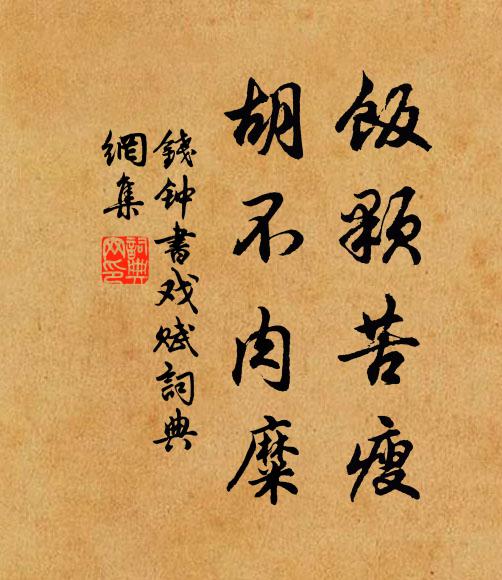 飯顆苦瘦
胡不肉糜
錢钟書戏赋詞典
網集
詞典
网印